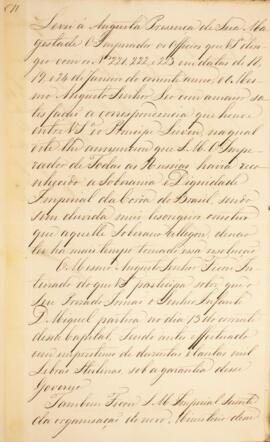 Levei à Augusta Presença de Sua Ma-
gestade O Imperador os Officios que V. S.ª diri-
gio com os N.os 221, 222, e 223 em datas de 11,
19, e 24 de Janeiro do corrente anno, e o Mes-
mo Augusto Senhor Leo com summa sa-
tisfação a correspondencia que houve
entre V. S.ª e o Principe Lieven, na qual
este lhe annunciou que S. M. O Impe-
rador de Todas as Russias havia reco-
nhecido a Soberania e Dignidade
Imperial da Corôa do Brasil, sendo
sem duvida mui lisongeiro
que aquelle Soberano
ha mais tempo tomado essa resolução
O Mesmo Augusto Senhor Ficou In-
teirado do que V. S.ª participa sobre que o
Seu Irmão o Senhor Infante
D. Miguel partira no dia 13 do corrente
desta Capital, tendo antes effeituado
hum emprestimo de duzentas e tantas mil
Libras Sterlinas, sob a garantia desse
Governo
Tambem Ficou S. M. Imperial Sciente
da organisação do novo Ministerio